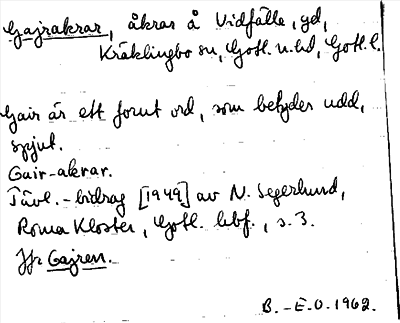 Gajrakrar, åkrar å Vidfälle, gd,
Kräklingbo sn, Gotl. n. hd, Gotl. l.
Gair är ett fornt ord, som betyder udd,
spjut.
Gair-akrar.
Tävl.-bidrag [1949] av N. Segerlund,
Roma Kloster, Gotl. lbf., s. 3.
Jfr Gajren.
B.-E.O. 1962.